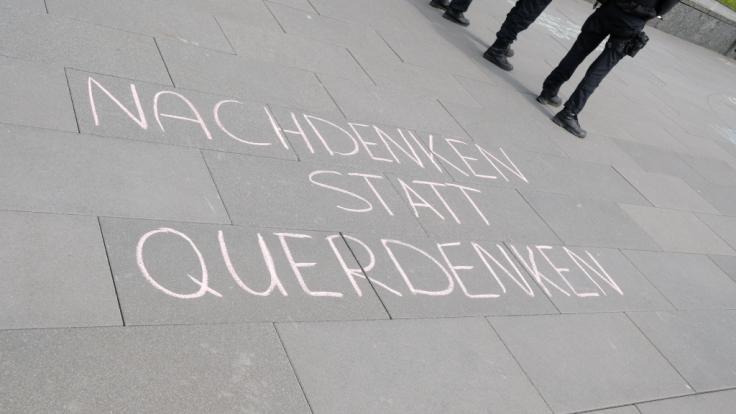 NACHDENKEN
STATT
QUERDENKEN